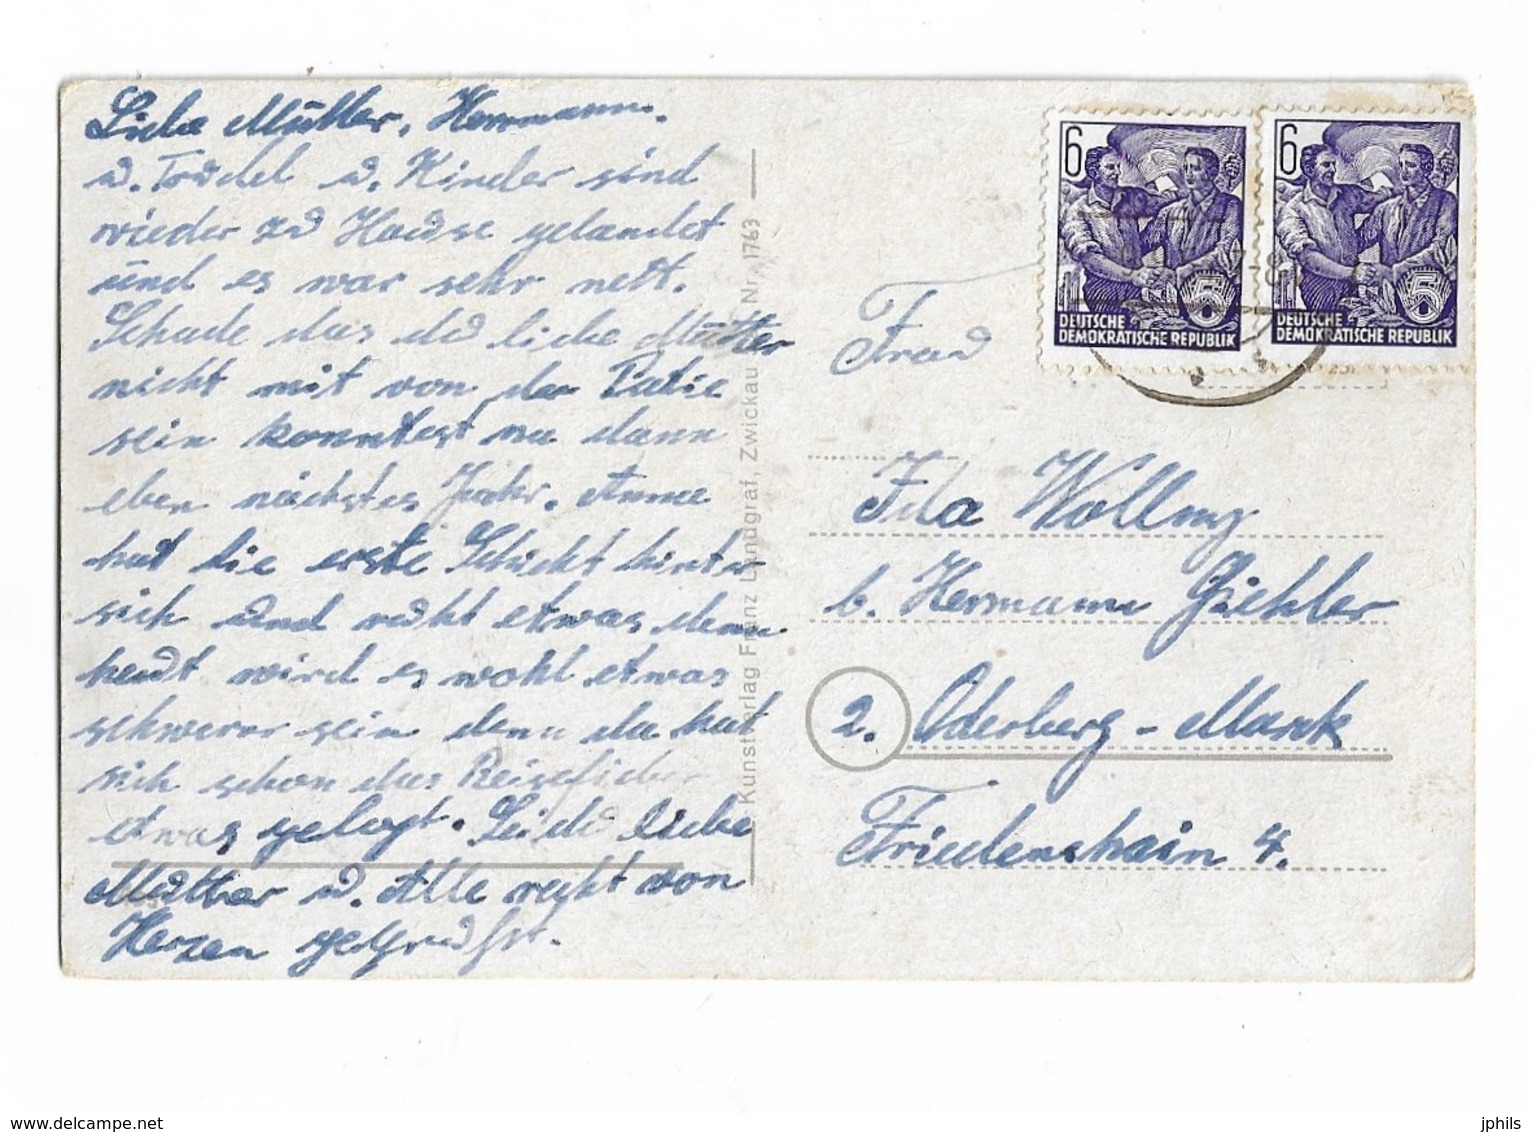 Liebe Mutter, Hermann.
u. Trudel u. Kinder sind
wieder zu Hause gelandet
und es war sehr nett.
Schade das du liebe Mutter
nicht mit von der Patie
sein konntest na dann
eben nächstes Jahr. Anne
hat die erste Schicht hinter
sich und ruht etwas denn
heut wird es wohl etwas
schwerer sein denn da hat
sich schon das Reisefieber
etwas gelegt. Seid liebe
Mutter u. Alle recht von
Herzen gegrüßt.
Kunstverlag Franz Landgraf, Zwickau Nr. 1763
6
DEUTSCHE
DEMOKRATISCHE REPUBLIK
5
6
DEUTSCHE
DEMOKRATISCHE REPUBLIK
5
Frau
Ida Wollny
b. Hermann
2. Oderberg-Mark
Friedenshain 4.
www.delcampe.net
jphils